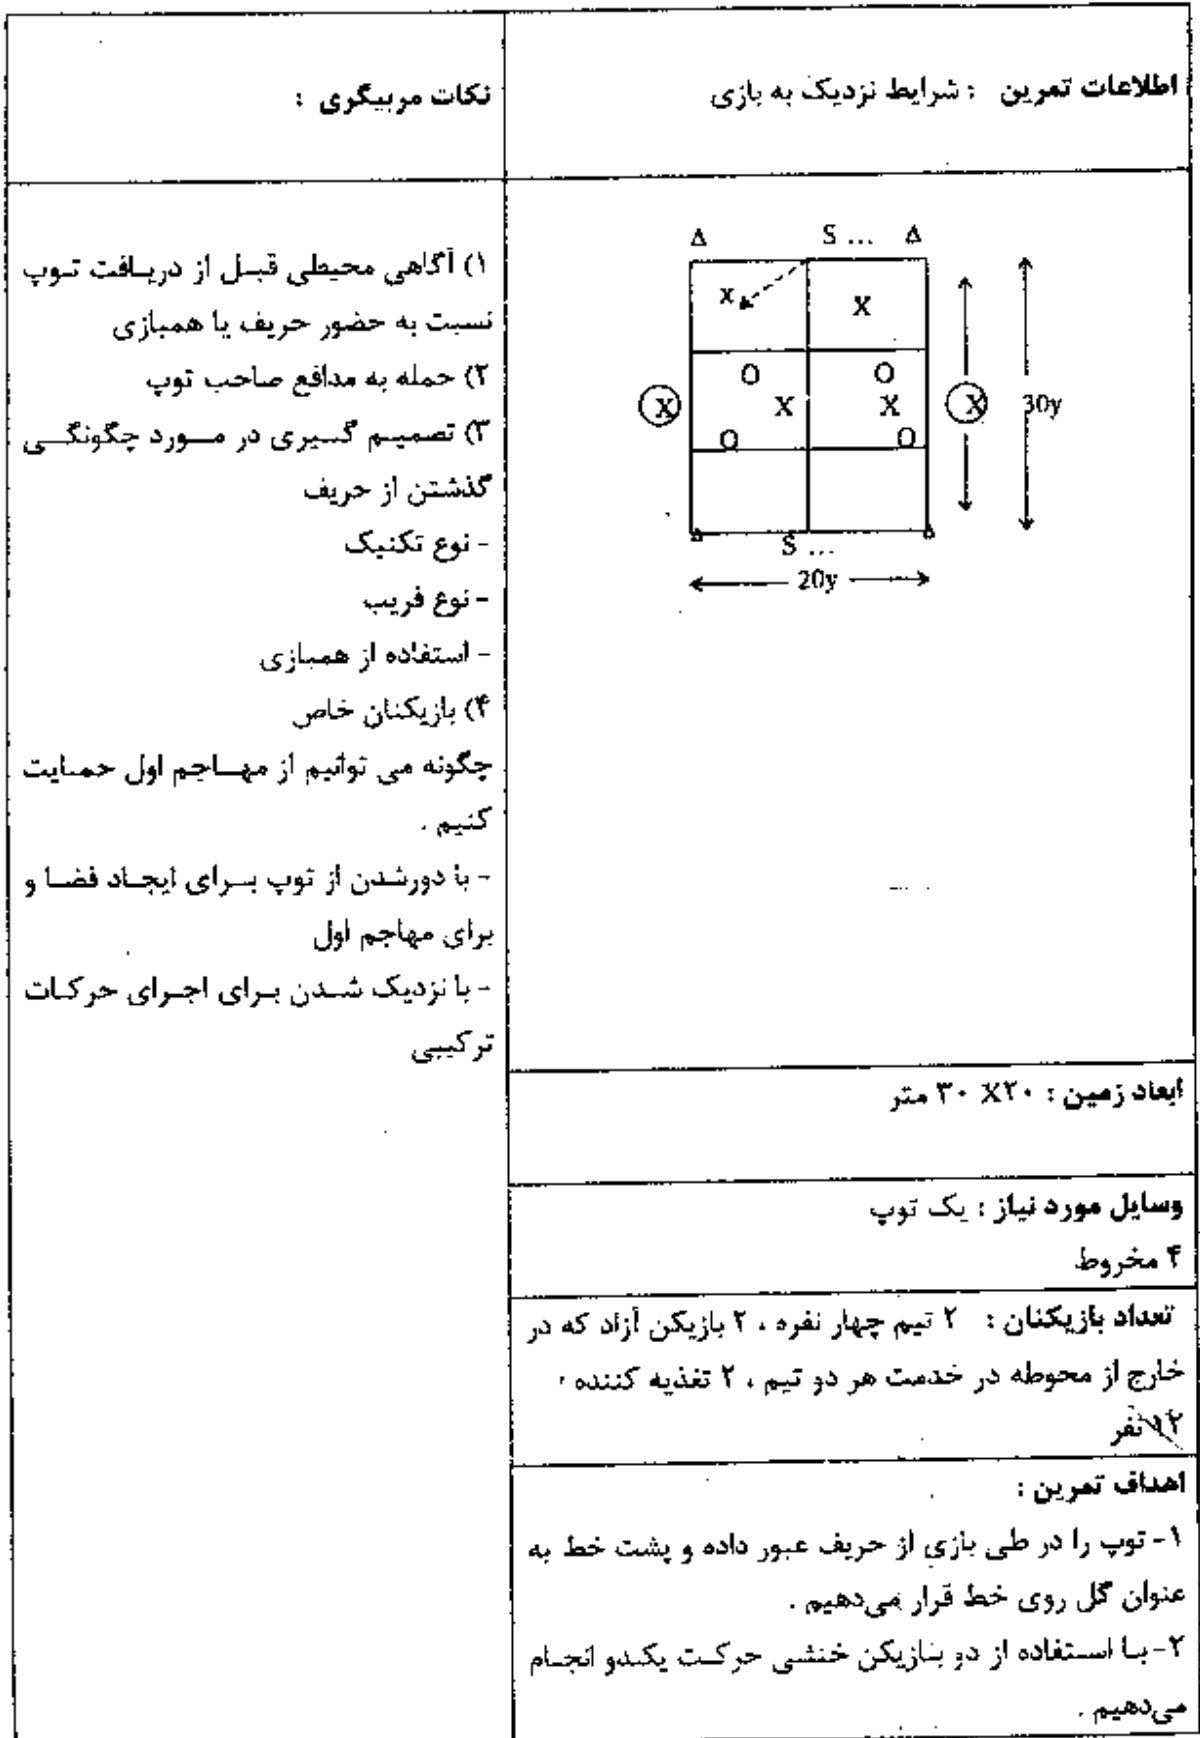 اطلاعات تمرین : شرایط نزدیک به بازی
نکات مربیگری :
Δ S ... Δ
x X
O O
X X X X 30y
O O
Δ S ... Δ
20y
ابعاد زمین : ۲۰X ۳۰ متر
وسایل مورد نیاز : یک توپ
۴ مخروط
تعداد بازیکنان : ۲ تیم چهار نفره ، ۲ بازیکن آزاد که در
خارج از محوطه در خدمت هر دو تیم ، ۲ تغذیه کننده ،
نفر
اهداف تمرین :
۱- توپ را در طی بازی از حریف عبور داده و پشت خط به
عنوان گل روی خط قرار می‌دهیم .
۲- با استفاده از دو بنازیکن خنشی حرکت یکدو انجام
می‌دهیم .
۱) آگاهی محیطی قبل از دریافت توپ
نسبت به حضور حریف یا همبازی
۲) حمله به مدافع صاحب توپ
۳) تصمیم گیری در مورد چگونگی
گذشتن از حریف
- نوع تکنیک
- نوع فریب
- استفاده از همبازی
۴) بازیکنان خاص
چگونه می توانیم از مهاجم اول حمایت
کنیم .
- با دورشدن از توپ برای ایجاد فضا و
برای مهاجم اول
- با نزدیک شدن برای اجرای حرکات
ترکیبی